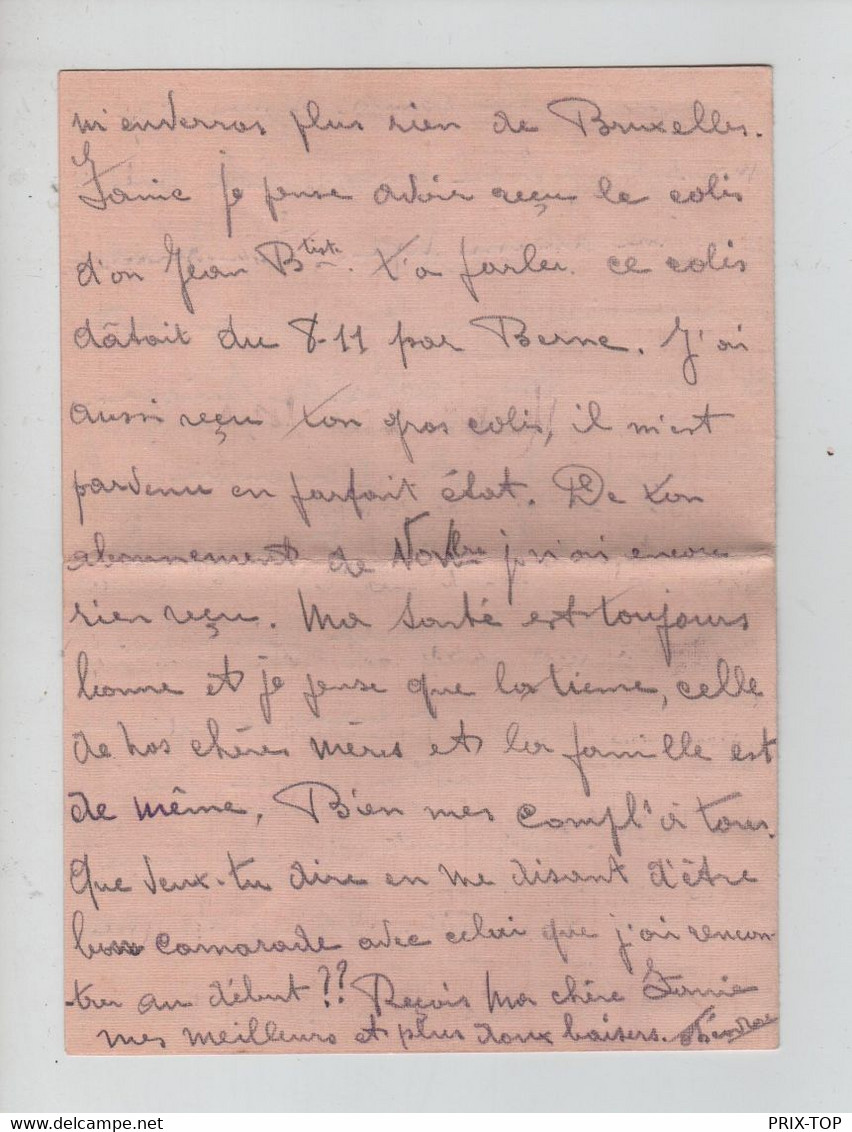 m'enverras plus rien de Bruxelles.
je pense avoir reçu le colis
d'on Jean Btiste. t'a parler. ce colis
dâtait du 8-11 par Berne. J'ai
aussi reçu ton gros colis, il m'est
parvenu en parfait état. De ton
abonnement de Novbre je n'ai encore
rien reçu. Ma santé est toujours
bonne et je pense que la tienne, celle
de nos chères mères et la famille est
de même. Bien mes compl'ts à tous.
Que veux-tu dire en me disant d'être
bon camarade avec celui que j'ai rencon-
trer au début?? Reçois ma chère
mes meilleurs et plus doux baisers.
PRIX-TOP